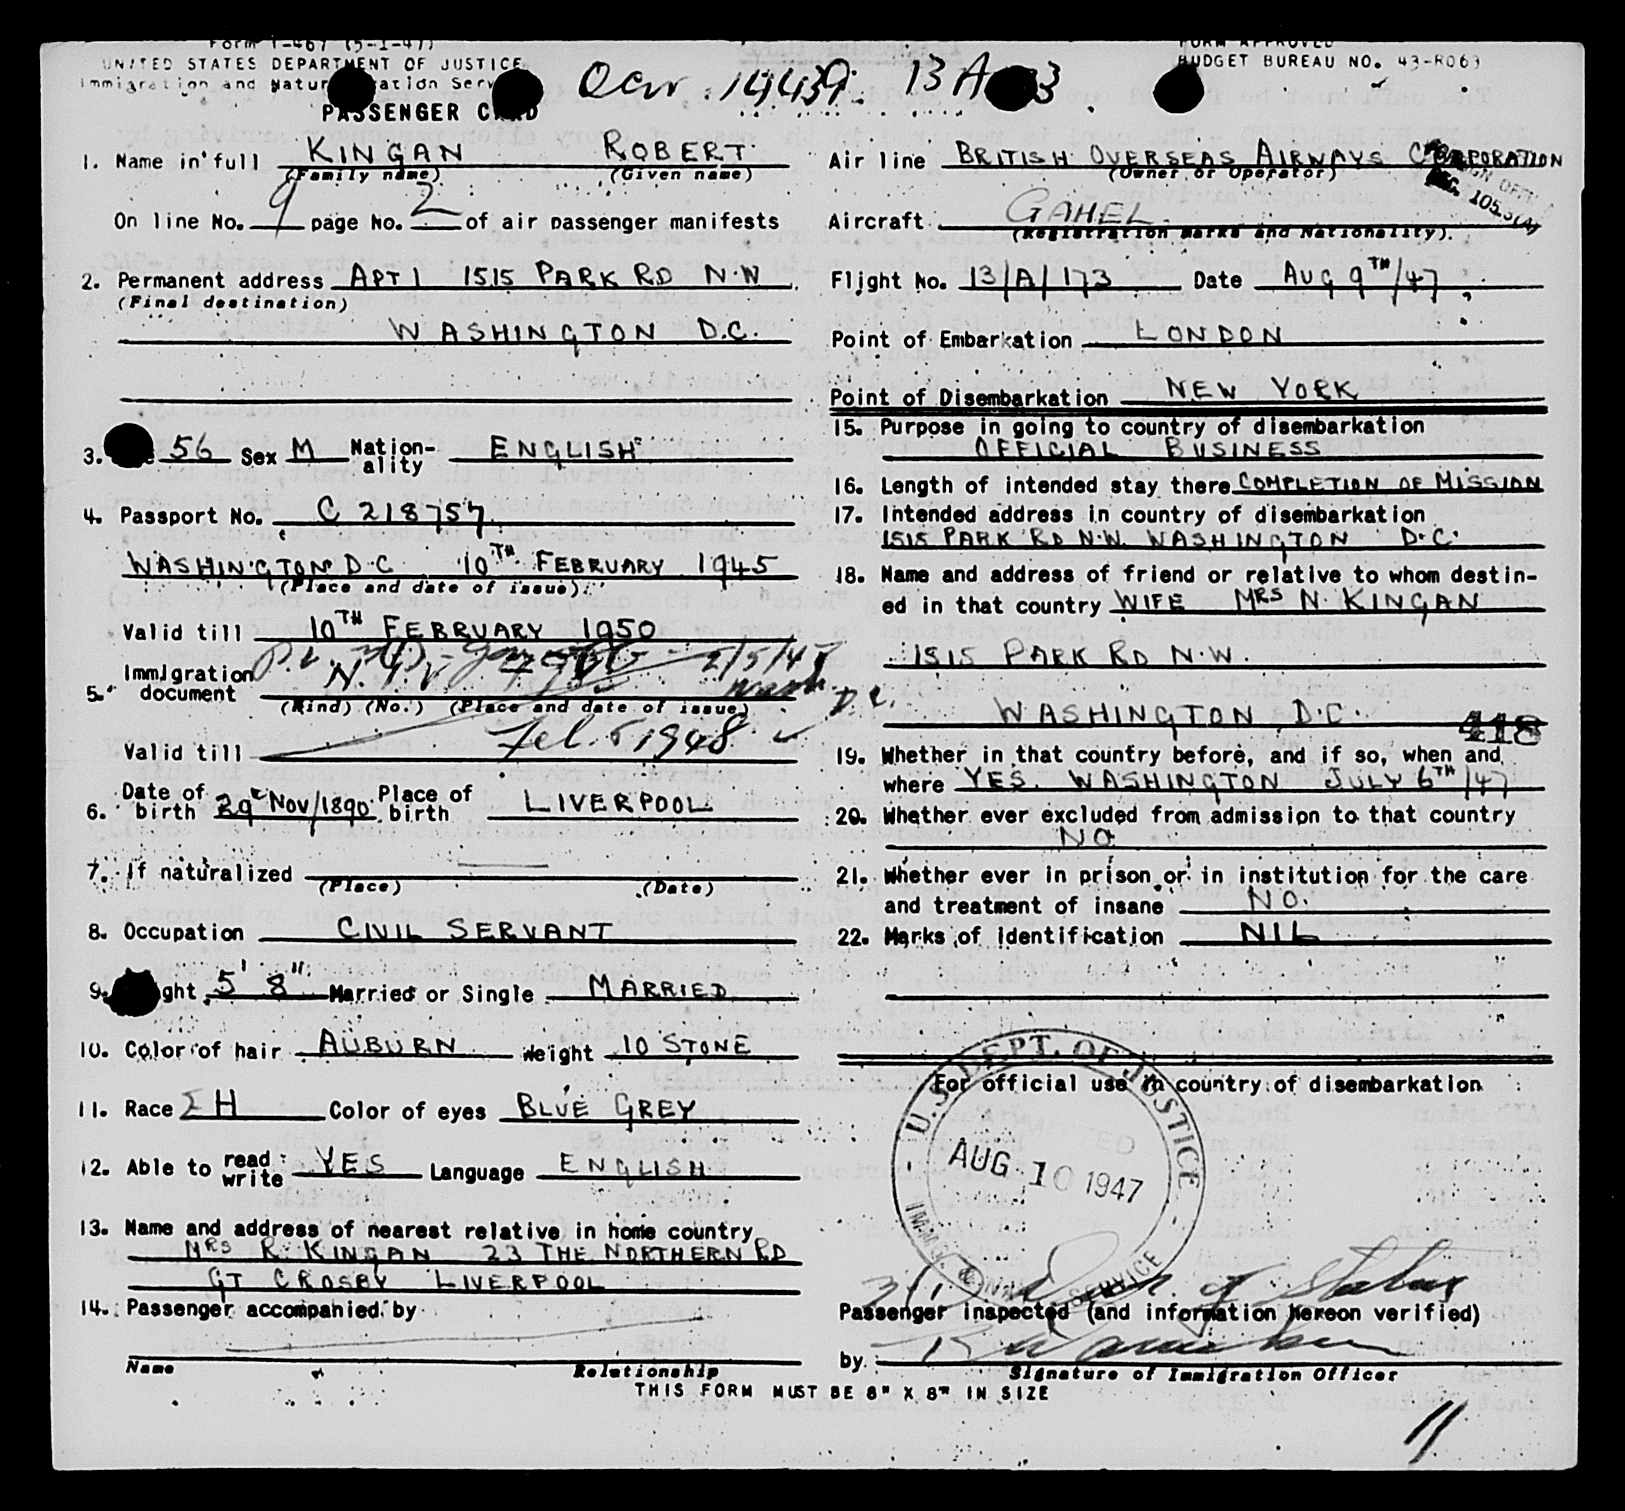 Form I-467 (5-1-47)
UNITED STATES DEPARTMENT OF JUSTICE
Immigration and Natur ation Serv
PASSENGER C RD
14439. 13 A 3
FORM APPROVED
BUDGET BUREAU NO. 43-R063
1. Name in full KINGAN ROBERT
(Family name) (Given name)
On line No. 9 page No. 2 of air passenger manifests
2. Permanent address APT 1 1515 PARK RD N.W
(Final destination)
WASHINGTON D.C.
3. 56 Sex M Nation-
ality ENGLISH
4. Passport No. C 218757
WASHINGTON D.C 10TH FEBRUARY 1945
(Place and date of issue)
Valid till 10TH FEBRUARY 1950
5. Immigration
document 2/5/47
(Kind) (No.) (Place and date of issue)
D.C.
Valid till Feb. 5 1948
6. Date of
birth 29 Nov/1890 Place of
birth LIVERPOOL
7. If naturalized
(Place) (Date)
8. Occupation CIVIL SERVANT
9. ght 5' 8" Married or Single MARRIED
10. Color of hair AUBURN Weight 10 STONE
11. Race H Color of eyes BLUE GREY
12. Able to read
write YES Language ENGLISH
13. Name and address of nearest relative in home country
MRS R. KINGAN 23 THE NORTHERN RD
GT CROSBY LIVERPOOL
14. Passenger accompanied by
Name Relationship
Air line BRITISH OVERSEAS AIRWAYS CORPORATION
(Owner or Operator)
Aircraft GAHEL.
(Registration marks and Nationality)
Flight No. 13/A/173 Date AUG 9TH/47
Point of Embarkation LONDON
Point of Disembarkation NEW YORK
15. Purpose in going to country of disembarkation
OFFICIAL BUSINESS
16. Length of intended stay there COMPLETION OF MISSION
17. Intended address in country of disembarkation
1515 PARK RD N.W. WASHINGTON D.C.
18. Name and address of friend or relative to whom destin-
ed in that country WIFE MRS N. KINGAN
1515 PARK RD N.W.
WASHINGTON D.C.
418
19. Whether in that country before, and if so, when and
where YES. WASHINGTON JULY 6TH/47
20. Whether ever excluded from admission to that country
NO
21. Whether ever in prison or in institution for the care
and treatment of insane NO.
22. Marks of identification NIL
For official use in country of disembarkation
U.S. DEPT. OF JUSTICE
AUG 10 1947
IMM. & SERVICE
of Status
Passenger inspected (and information hereon verified)
by
Signature of Immigration Officer
THIS FORM MUST BE 8" X 8" IN SIZE
11